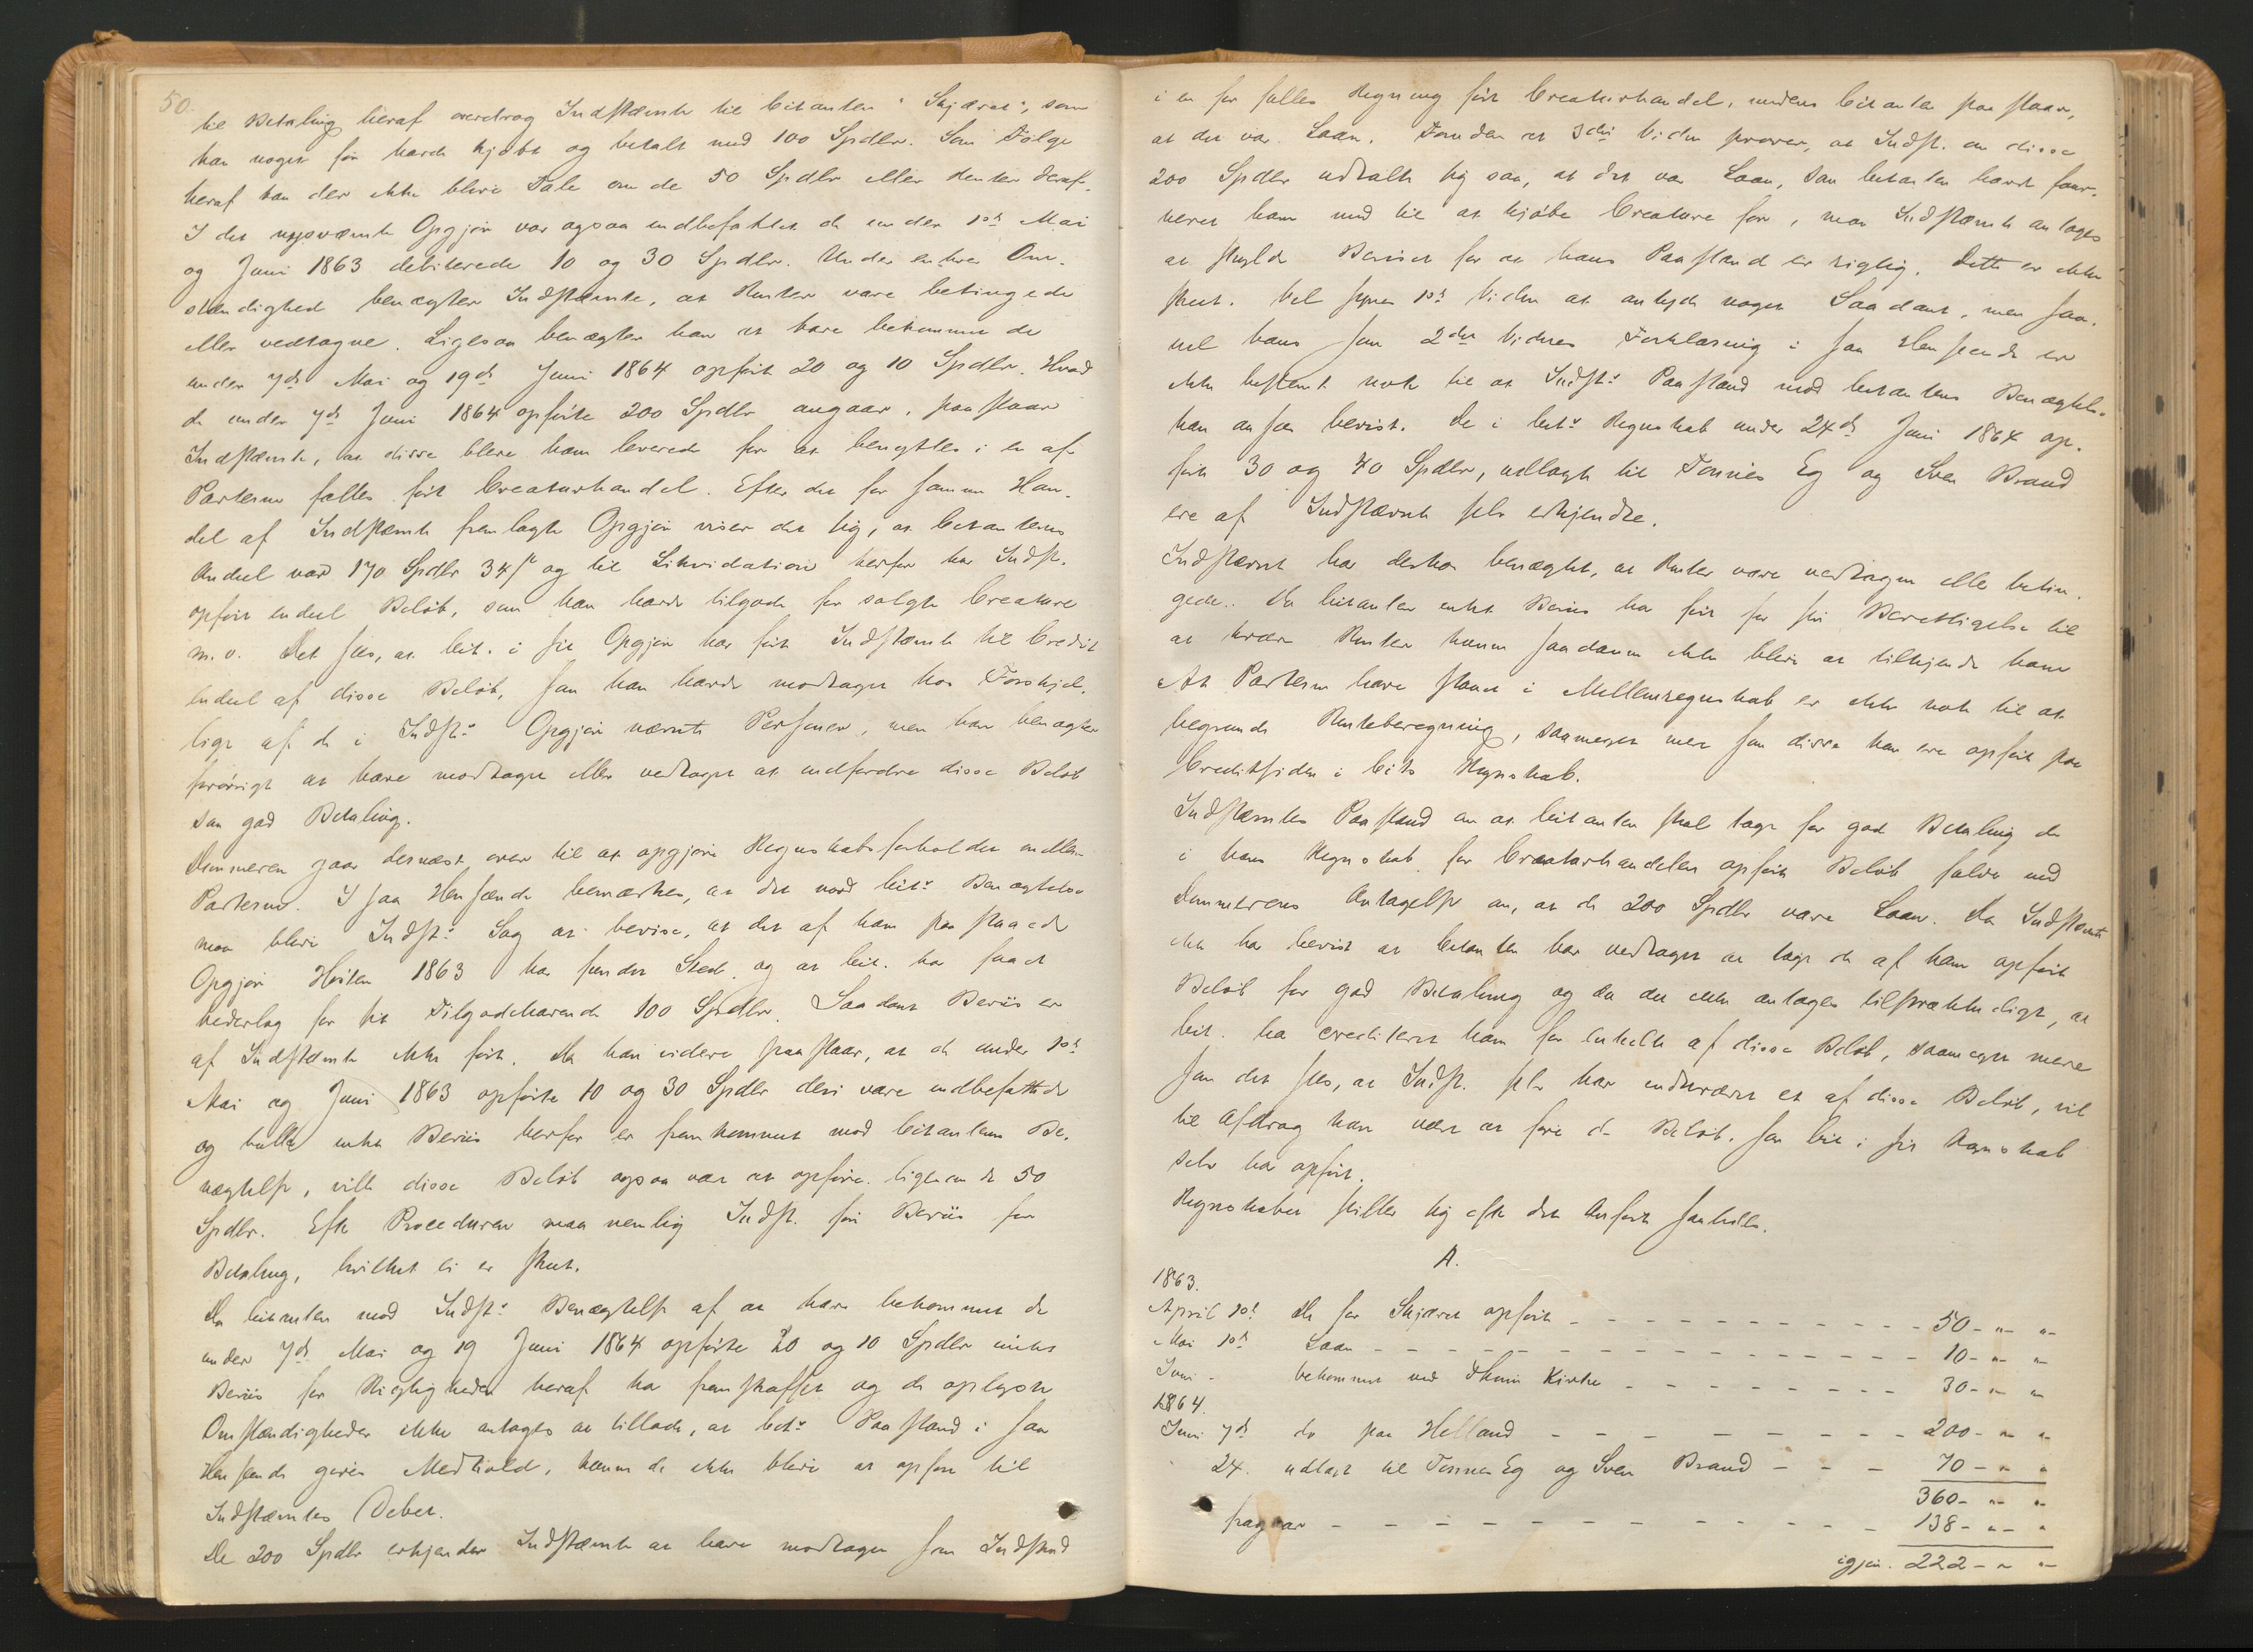 50.
til Betaling heraf overdrog Indstævnte til Citanten "Skjæret", som
han noget før havde kjøbt og betalt med 100 Spdlr. Som Følge
heraf kan der ikke blive Tale om de 50 Spdlr eller Renter deraf.
I det nysnævnte Opgjør var ogsaa indbefattet de under 1ste Mai
og Juni 1863 debiterede 10 og 30 Spdlr. Under enhver Om-
stændighed benægter Indstævnte, at Renter vare betingede
eller vedtagne. Ligesaa benægter han at have bekommet de
under 7de Mai og 19de Juni 1864 opførte 20 og 10 Spdlr. Hvad
de under 7de Juni 1864 opførte 200 Spdlr angaar, paastaar
Indstævnte, at disse bleve ham leverede for at benyttes i en af
Parterne fælles ført Creaturhandel. Efter det for samme Han-
del af Indstævnte fremlagte Opgjør viser det sig, at Citantens
Andeel var 170 Spdlr 34 s og til Likvidation herfor har Indst.
opført endeel Beløb, som han havde tilgode for solgte Creature
m.v. Det sees, at Cit. i sit Opgjør har ført Indstævnte til Credit
endeel af disse Beløb, som han havde modtaget hos Forskjel-
lige af de i Indst:s Opgjør nævnte Personer, men han benægter
forøvrigt at have modtaget eller vedtaget at indfordre disse Beløb
som god Betaling.
Dommeren gaar dernæst over til at opgjøre Regnskabsforholdet mellem
Parterne. I saa Henseende bemærkes, at det mod Cit:s Benægtelse
maa blive Indst:s Sag at bevise, at det af ham paastaaede
Opgjør Høsten 1863 har fundet Sted og at Cit. har faaet
Vederlag for sit Tilgodehavende 100 Spdlr. Saadant Beviis er
af Indstævnte ikke ført. Da han videre paastaar, at de under 1ste
Mai og Juni 1863 opførte 10 og 30 Spdlr deri vare indbefattede
og heller intet Beviis herfor er fremkommet mod Citantens Be-
nægtelse, ville disse Beløb ogsaa være at opføre ligesom de 50
Spdlr. Efter Proceduren maa nemlig Indst. føre Beviis for
Betaling, hvilket ei er skeet.
Da Citanten mod Indst:s Benægtelse af at have bekommet de
under 7de Mai og 19 Juni 1864 opførte 20 og 10 Spdlr intet
Beviis for Rigtigheden heraf har fremskaffet og de oplyste
Omstændigheder ikke antages at tillade, at Cit:s Paastand i saa
Henseende gives Medhold, kunne de ikke blive at opføre til
Indstævntes Debet.
De 200 Spdlr erkjender Indstævnte at have modtaget som Indskud
i en for fælles Regning ført Creaturhandel, medens Citanten paastaar,
at det var Laan. Foruden at 3die Vidne prover, at Indst. om disse
200 Spdlr udtalte sig saa, at det var Laan, som Citanten havde foru-
neret ham med til at kjøbe Creature for, maa Indstævnte antages
at skylde Beviset for at hans Paastand er rigtig. Dette er ikke
skeet. Vel synes 1ste Vidne at antyde noget Saadant, men saa-
vel hans som 2det Vidnes Forklaring i saa Henseende er
ikke bestemt nok til at Indst:s Paastand mod Citantens Benægtelse
kan ansees bevist. De i Cit:s Regnskab under 24de Juni 1864 op-
førte 30 og 40 Spdlr, udlagte til Tønnes Eg og Sven Braad
ere af Indstævnte selv erkjendte.
Indstævnte har derhos benægtet, at Renter vare vedtagne eller betin-
gede. Da Citanten intet Beviis har ført for sin Berettigelse til
at kræve Renter kunne saadanne ikke blive at tilkjende ham
At Parterne have staaet i Mellemregnskab er ikke nok til at
begrunde Renteberegning, saameget mere som disse kun ere opført paa
Creditsiden i Cits Regnskab.
Indstævntes Paastand om at Citanten skal tage for god Betaling de
i hans Regnskab for Creaturhandelen opførte Beløb falder med
Dommerens Antagelse om, at de 200 Spdlr vare Laan. Da Indstævnte
ikke har bevist at Citanten har vedtaget at tage de af ham opførte
Beløb for god Betaling og da det ikke antages tilstrækkeligt, at
Cit. har crediteret ham for enkelte af disse Beløb, saameget mere
som det sees, at Indst. selv har inddrevet et af disse Beløb, vil
til Afdrag kun være at føre de Beløb, som Cit i sit Regnskab
selv har opført.
Regnskabet stiller sig efter det Anførte saaledes.
A.
1863.
April 10de De for Skjæret opførte - - - 50 - " "
Mai 1ste Laan - - - 10 - " "
Juni - bekommet ved Kirke - - - 30 - " "
1864.
Juni 7de do paa Helland - - - 200 - " "
24. udlagt til Tønnes Eg og Sven Braad - - - 70 - " "
360 - " "
fragaar - - - 138 - " "
igjen 222 - " "